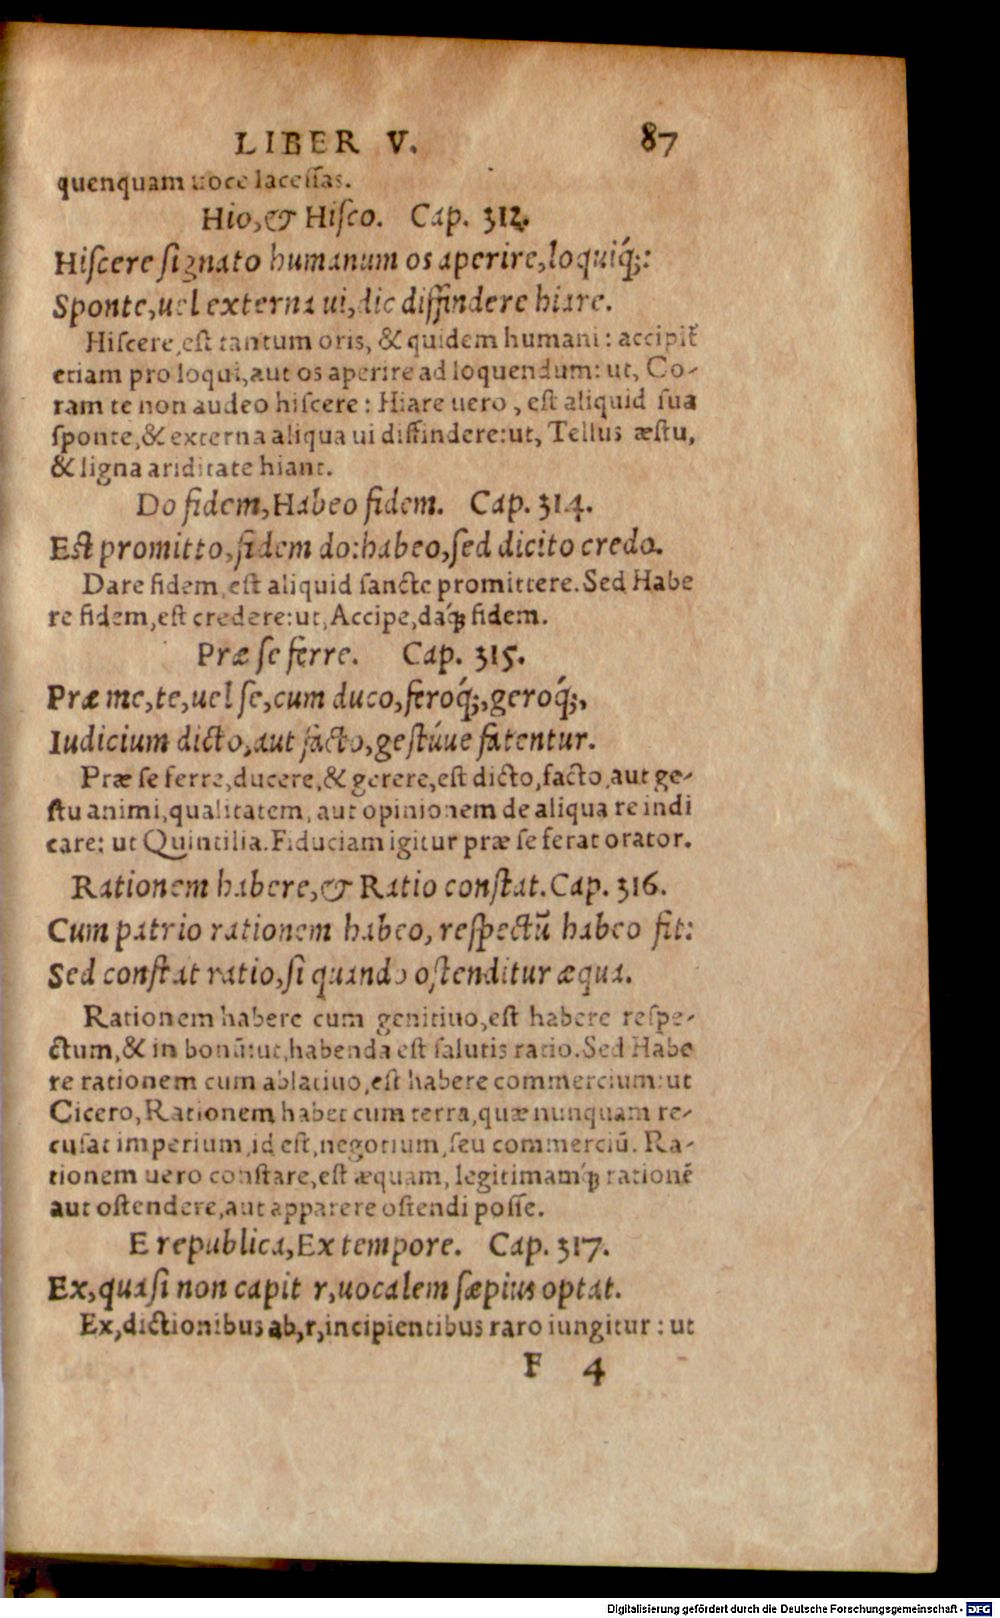 LIBER V. 87
quenquam uoce lacessas.
Hio, & Hisco. Cap. 312.
Hiscere signato humanum os aperire, loquiq́;:
Sponte, uel externa ui, dic diffindere hiare.
Hiscere, est tantum oris, & quidem humani: accipit᷑
etiam pro loqui, aut os aperire ad loquendum: ut, Co-
ram te non audeo hiscere: Hiare uero, est aliquid sua
sponte, & externa aliqua ui diffindere: ut, Tellus æstu,
& ligna ariditate hiant.
Do fidem, Habeo fidem. Cap. 314.
Est promitto, fidem do: habeo, sed dicito credo.
Dare fidem, est aliquid sancte promittere. Sed Habe
re fidem, est credere: ut, Accipe, daq́ꝫ fidem.
Præ se ferre. Cap. 315.
Præ me, te, uel se, cum duco, feroq́;, geroq́;,
Iudicium dicto, aut facto, gestúue fatentur.
Præ se ferre, ducere, & gerere, est dicto, facto, aut ge-
stu animi, qualitatem, aut opinionem de aliqua re indi
care: ut Quintilia. Fiduciam igitur præ se ferat orator.
Rationem habere, & Ratio constat. Cap. 316.
Cum patrio rationem habeo, respectū habeo fit:
Sed constat ratio, si quando ostenditur æqua.
Rationem habere cum genitiuo, est habere respe-
ctum, & in bonū: ut, habenda est salutis ratio. Sed Habe
re rationem cum ablatiuo, est habere commercium: ut
Cicero, Rationem habet cum terra, quæ nunquam re-
cusat imperium, id est, negotium, seu commerciū. Ra-
tionem uero constare, est æquam, legitimamq́ꝫ rationē
aut ostendere, aut apparere ostendi posse.
E republica, Ex tempore. Cap. 317.
Ex, quasi non capit r, uocalem sæpius optat.
Ex, dictionibus ab, r, incipientibus raro iungitur: ut
F 4
Digitalisierung gefördert durch die Deutsche Forschungsgemeinschaft - DFG